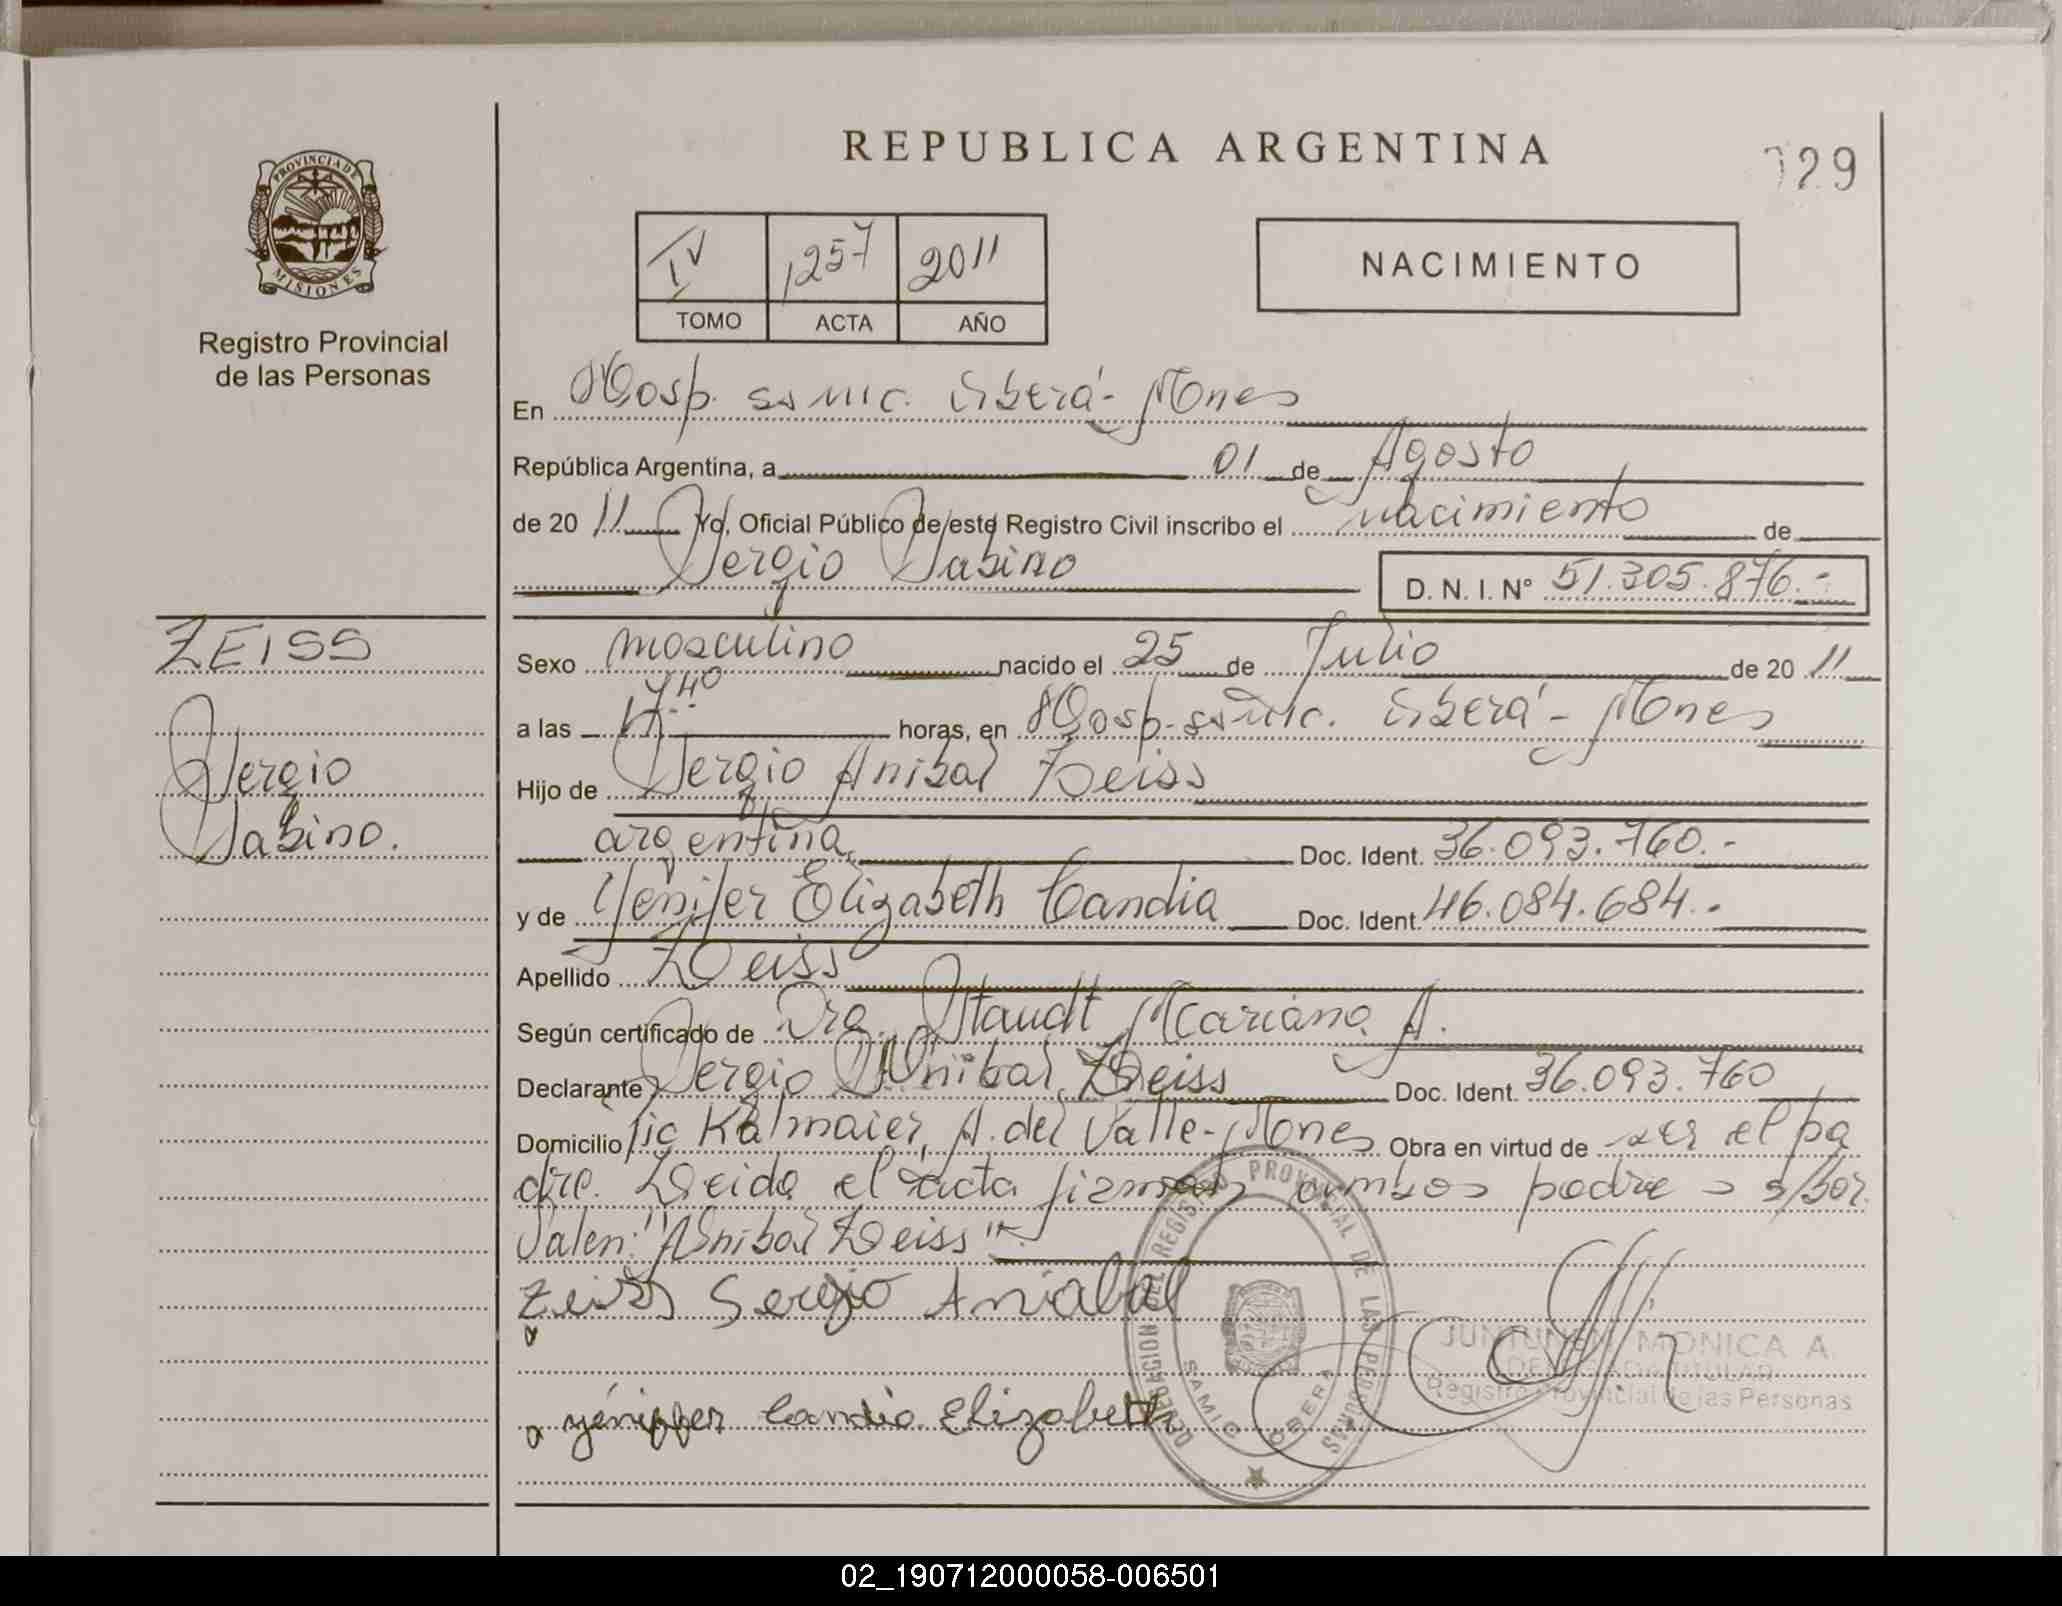 REPUBLICA ARGENTINA
729
PROVINCIA DE
MISIONES
Registro Provincial
de las Personas
IV 1257 2011
TOMO ACTA AÑO
NACIMIENTO
En Hosp. ssmic. oberá - Mones
República Argentina, a 01 de Agosto
de 20 11 Yo, Oficial Público de este Registro Civil inscribo el nacimiento de
Sergio Sabino D. N. I. Nº 51.305.876.-
ZEISS
Sergio
Sabino.
Sexo masculino nacido el 25 de Julio de 20 11
a las 17:40 horas, en Hosp. ssmic. oberá - Mones
Hijo de Sergio Anibal Zeiss
argentina, Doc. Ident. 36.093.760.-
y de Yenifer Elizabeth Candia Doc. Ident. 46.084.684.-
Apellido Zeiss
Según certificado de Dra. Staudt Mariana A.
Declarante Sergio Anibal Zeiss Doc. Ident. 36.093.760
Domicilio Pic Kalmaier, A. del Valle - Mones Obra en virtud de ser el pa
dre. Leida el acta firman ambos padre s s/bor.
Valen: "Anibal Zeiss"
Zeiss Sergio Aniabal
yéniffer Candia Elizabeth
DELEGACION DEL REGISTRO PROVINCIAL DE LAS PERSONAS
SAMIC OBERA
JUNTUNEN MONICA A.
DELEGADA TITULAR
Registro Provincial de las Personas
02_190712000058-006501